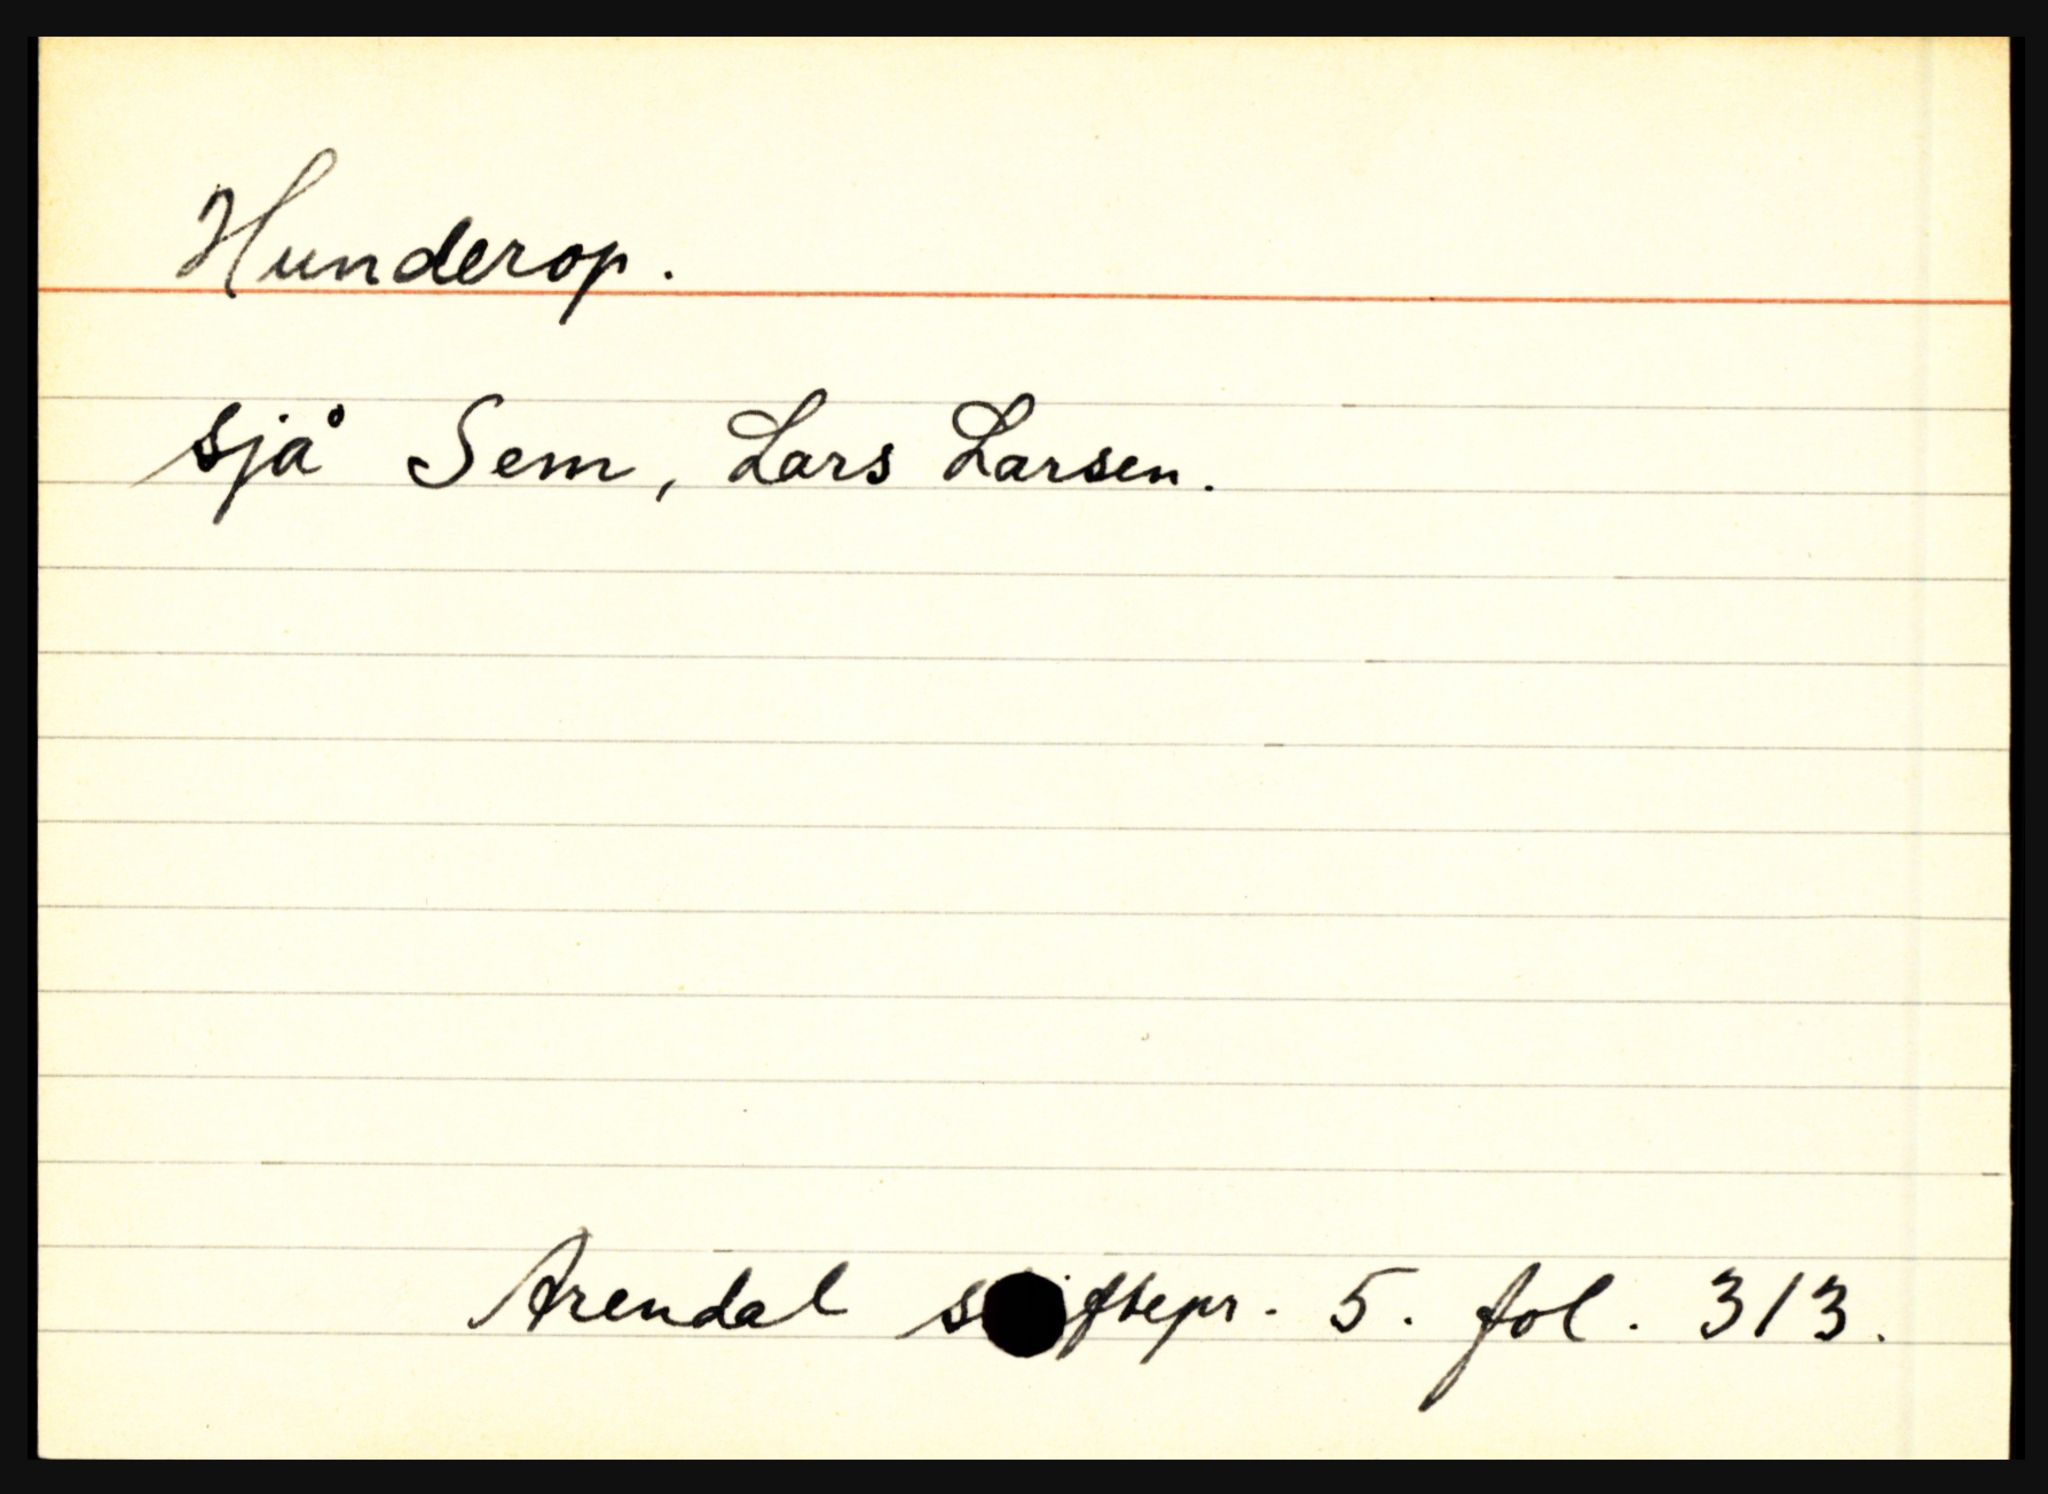 Hunderop.
sjå Sem, Lars Larsen.
Arendal skiftepr. 5. fol. 313.